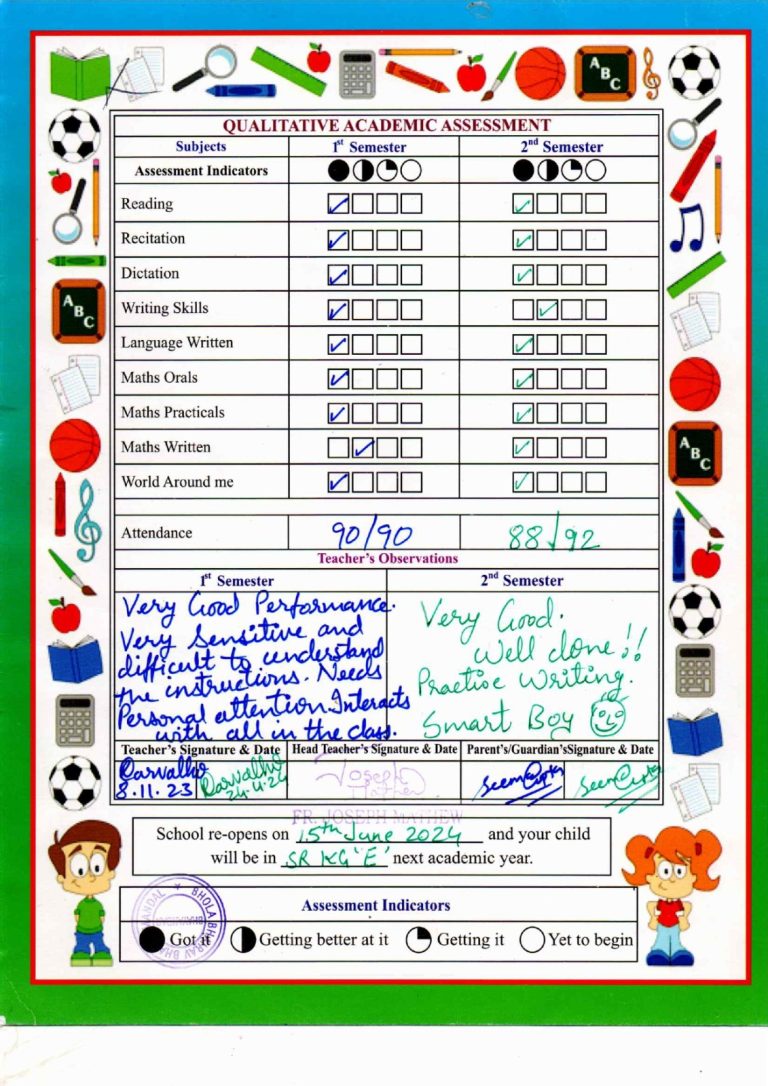 QUALITATIVE ACADEMIC ASSESSMENT
Subjects 1st Semester 2nd Semester
Assessment Indicators
Reading
Recitation
Dictation
Writing Skills
Language Written
Maths Orals
Maths Practicals
Maths Written
World Around me
Attendance 90/90 88/92
Teacher's Observations
1st Semester 2nd Semester
Very Good Performance.
Very Sensitive and
difficult to understand
the instructions. Needs
Personal attention Interacts
with all in the class.
Very Good.
Well done!!
Practise Writing.
Smart Boy
Teacher's Signature & Date Head Teacher's Signature & Date Parent's/Guardian'sSignature & Date
Carvalho
8.11.23
Carvalho
24.4.24
Joseph
FR. JOSEPH MATHEW
School re-opens on 15th June 2024 and your child
will be in SR KG 'E' next academic year.
Assessment Indicators
Got it Getting better at it Getting it Yet to begin
A B C
A B C
A B C